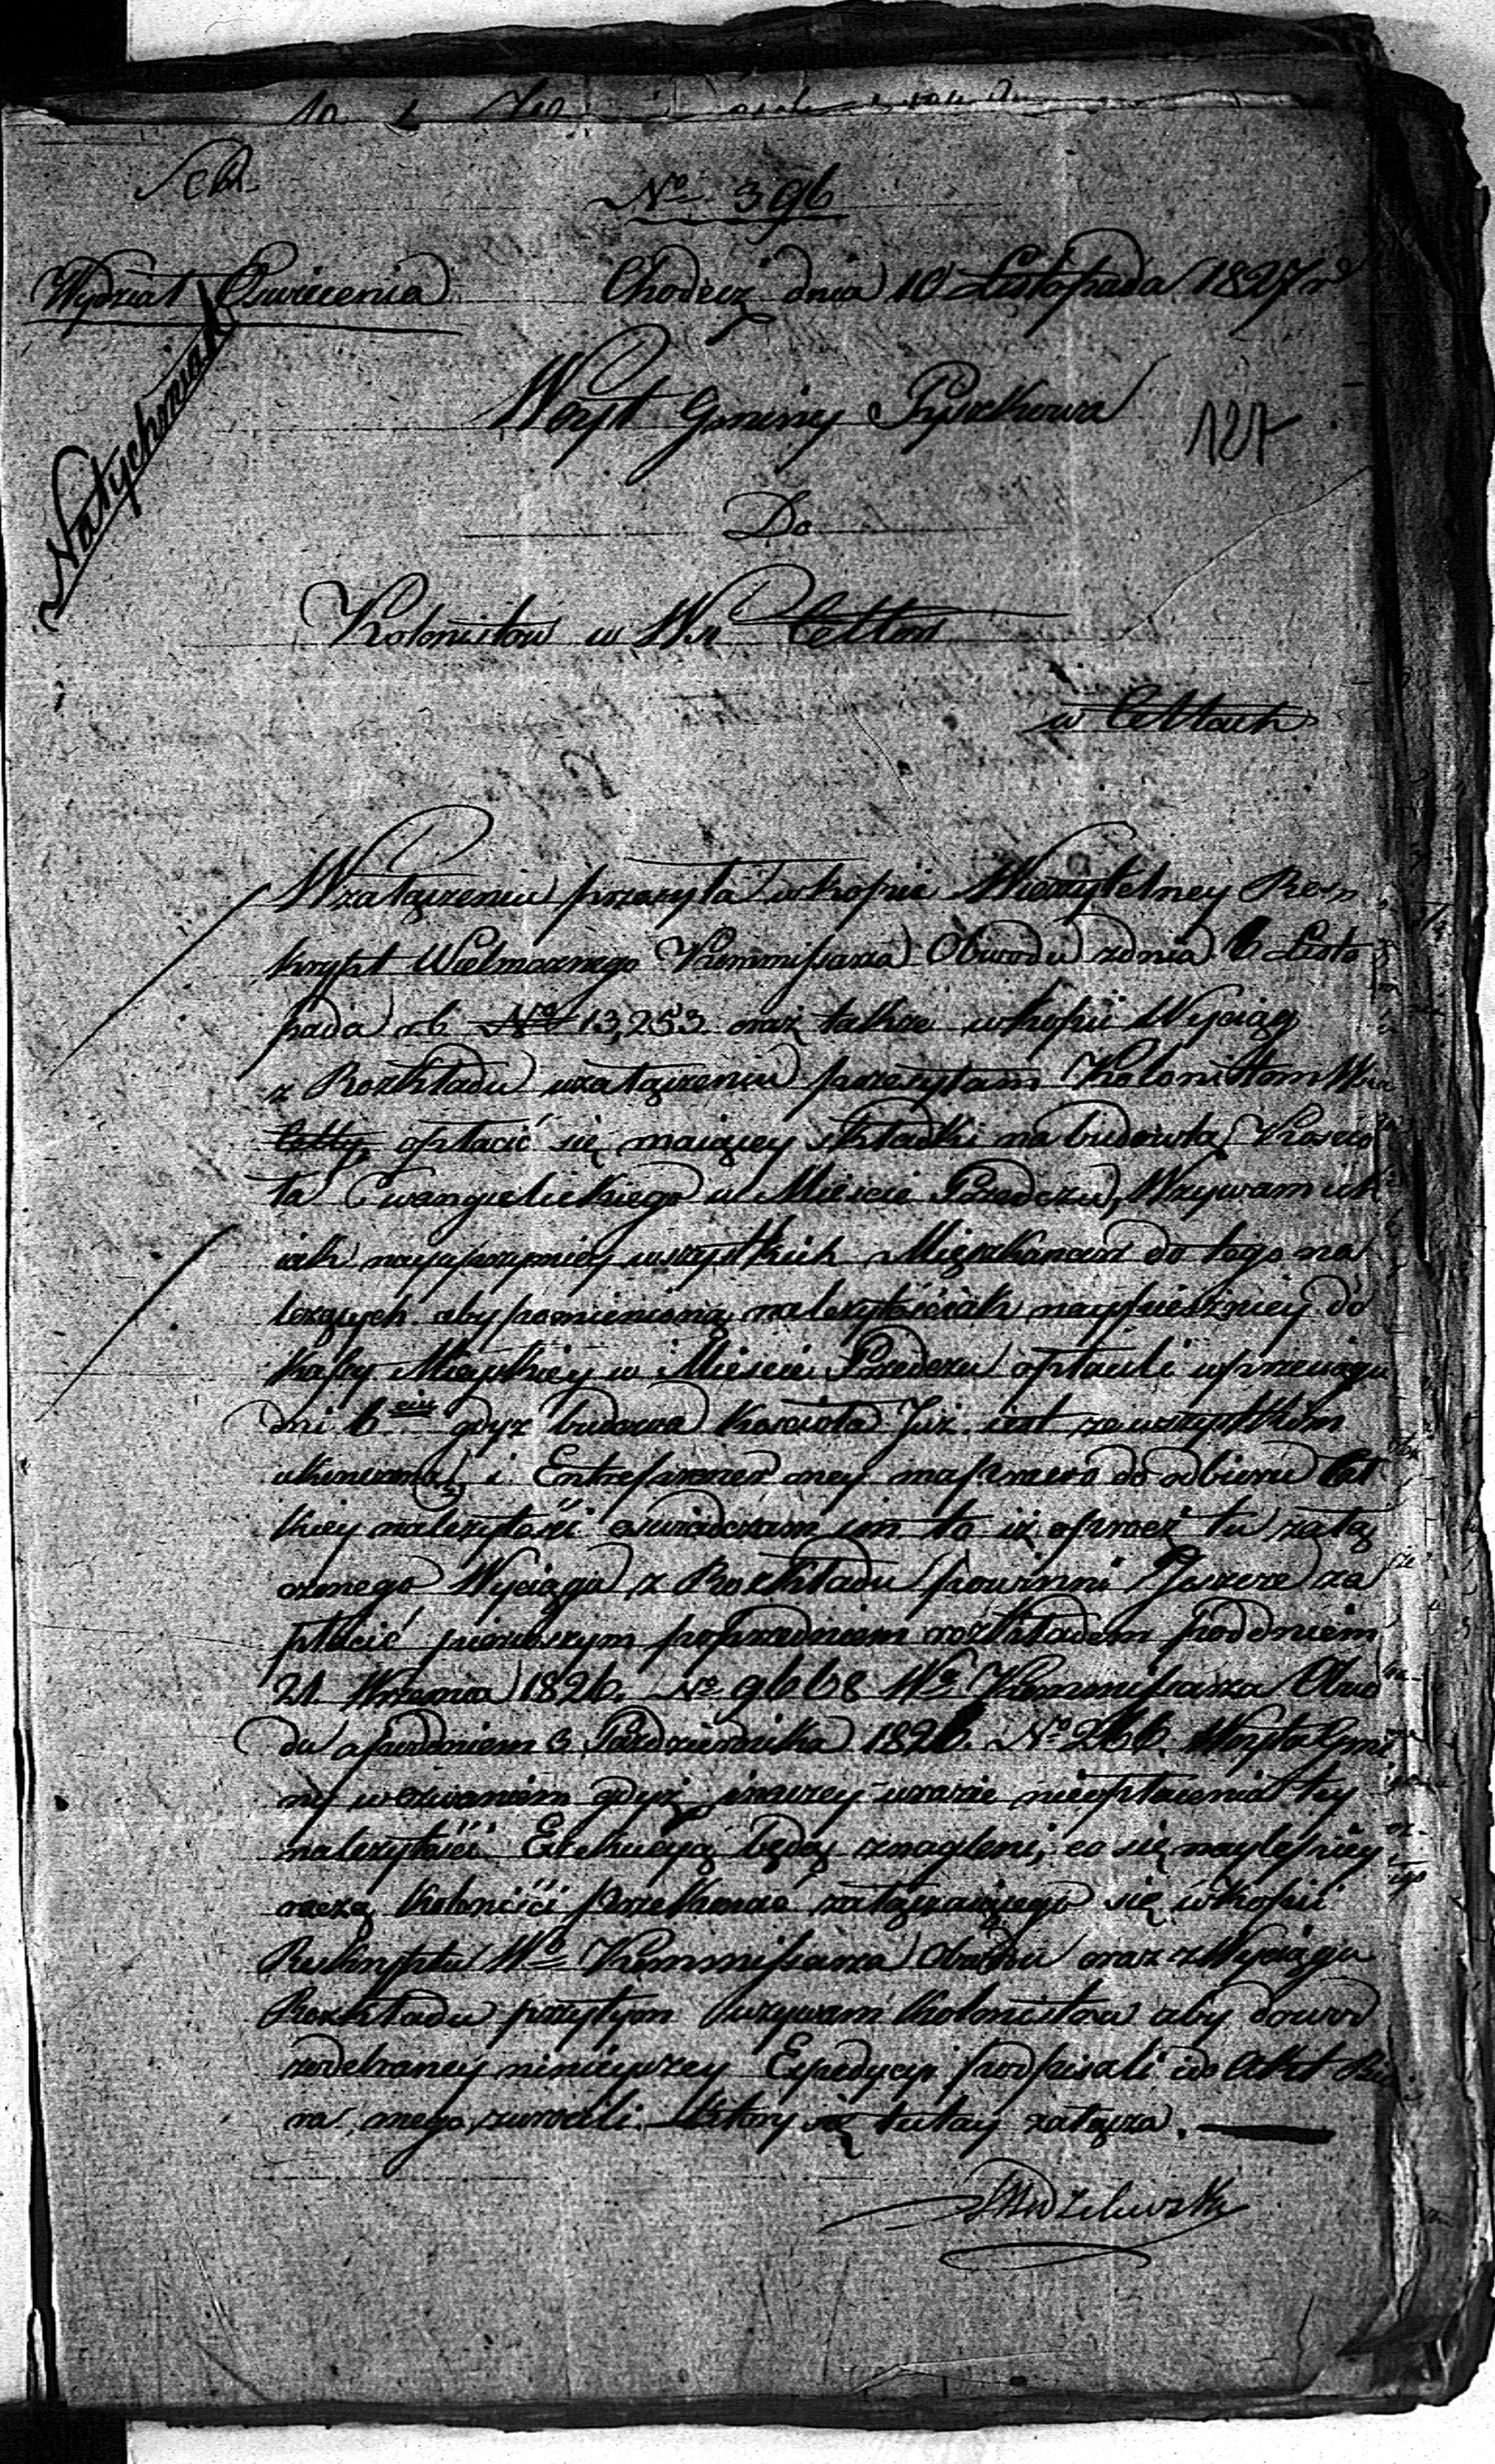 No 396
Wydział Oswiecenia
Chodecz dnia 10 Listopada 1827 r
Natychmiast
Woyt Gminy Pyszkowa
127
Do
Kolonistow w Wsi Cettow
w Cettach
W załączeniu przesyła w kopii Wierzytelney Res
krypt Wielmoznego Kommissarza Obwodu z dnia 6 Listo
pada r b No 13,253 oraz takze w kopii Wyciąg
z Rozkładu w załączeniu przesyłam Kolonistom Wsi
Cetty, opłacić się maiącey składki na budowlą Koscio
ła Ewangielickiego w Miescie Przedczu, Wzywam ich
iak nayuprzymiey wszystkich Mięszkancow do tego na
lezących aby pomienioną nalezytość iak nayspieszniey do
Kassy Mieyskiey w Miescie Przedczu opłacili w przeciągu
dni 6ciu gdyz budowa Koscioła Juz iest ze wszystkim
ukonczoną i Entreprener oney ma prawo do odbioru cał
kiey nalezytości oswiadczam im to iz oprocz tu załą
czonego Wyciągu z Rozkładu powinni Jeszcze za
płacić pierwszym poprzedniem rozkładem pod dniem
21. Wrzesnia 1826. No 9668 Wo Kommissarza Obwo
du a pod dniem 3 Pazdziernika 1826. No 266. Woyta Gmi
ny wezwaniem gdyz inaczey w razie nieopłacenia tey
nalezytości Exekucyą będą znagleni, co się naylepiey
raczą Koloniści przekonać załączaiącego się w kopii
Reskryptu Wo Kommissarza Obwodu oraz z Wyciągu
Rozkładu przytym wzywam Kolonistow aby dowod
z odebraney ninieyszey Expedycyi podpisali i do Akt Biu
ra mego zwrocili ktory się tutay załącza.